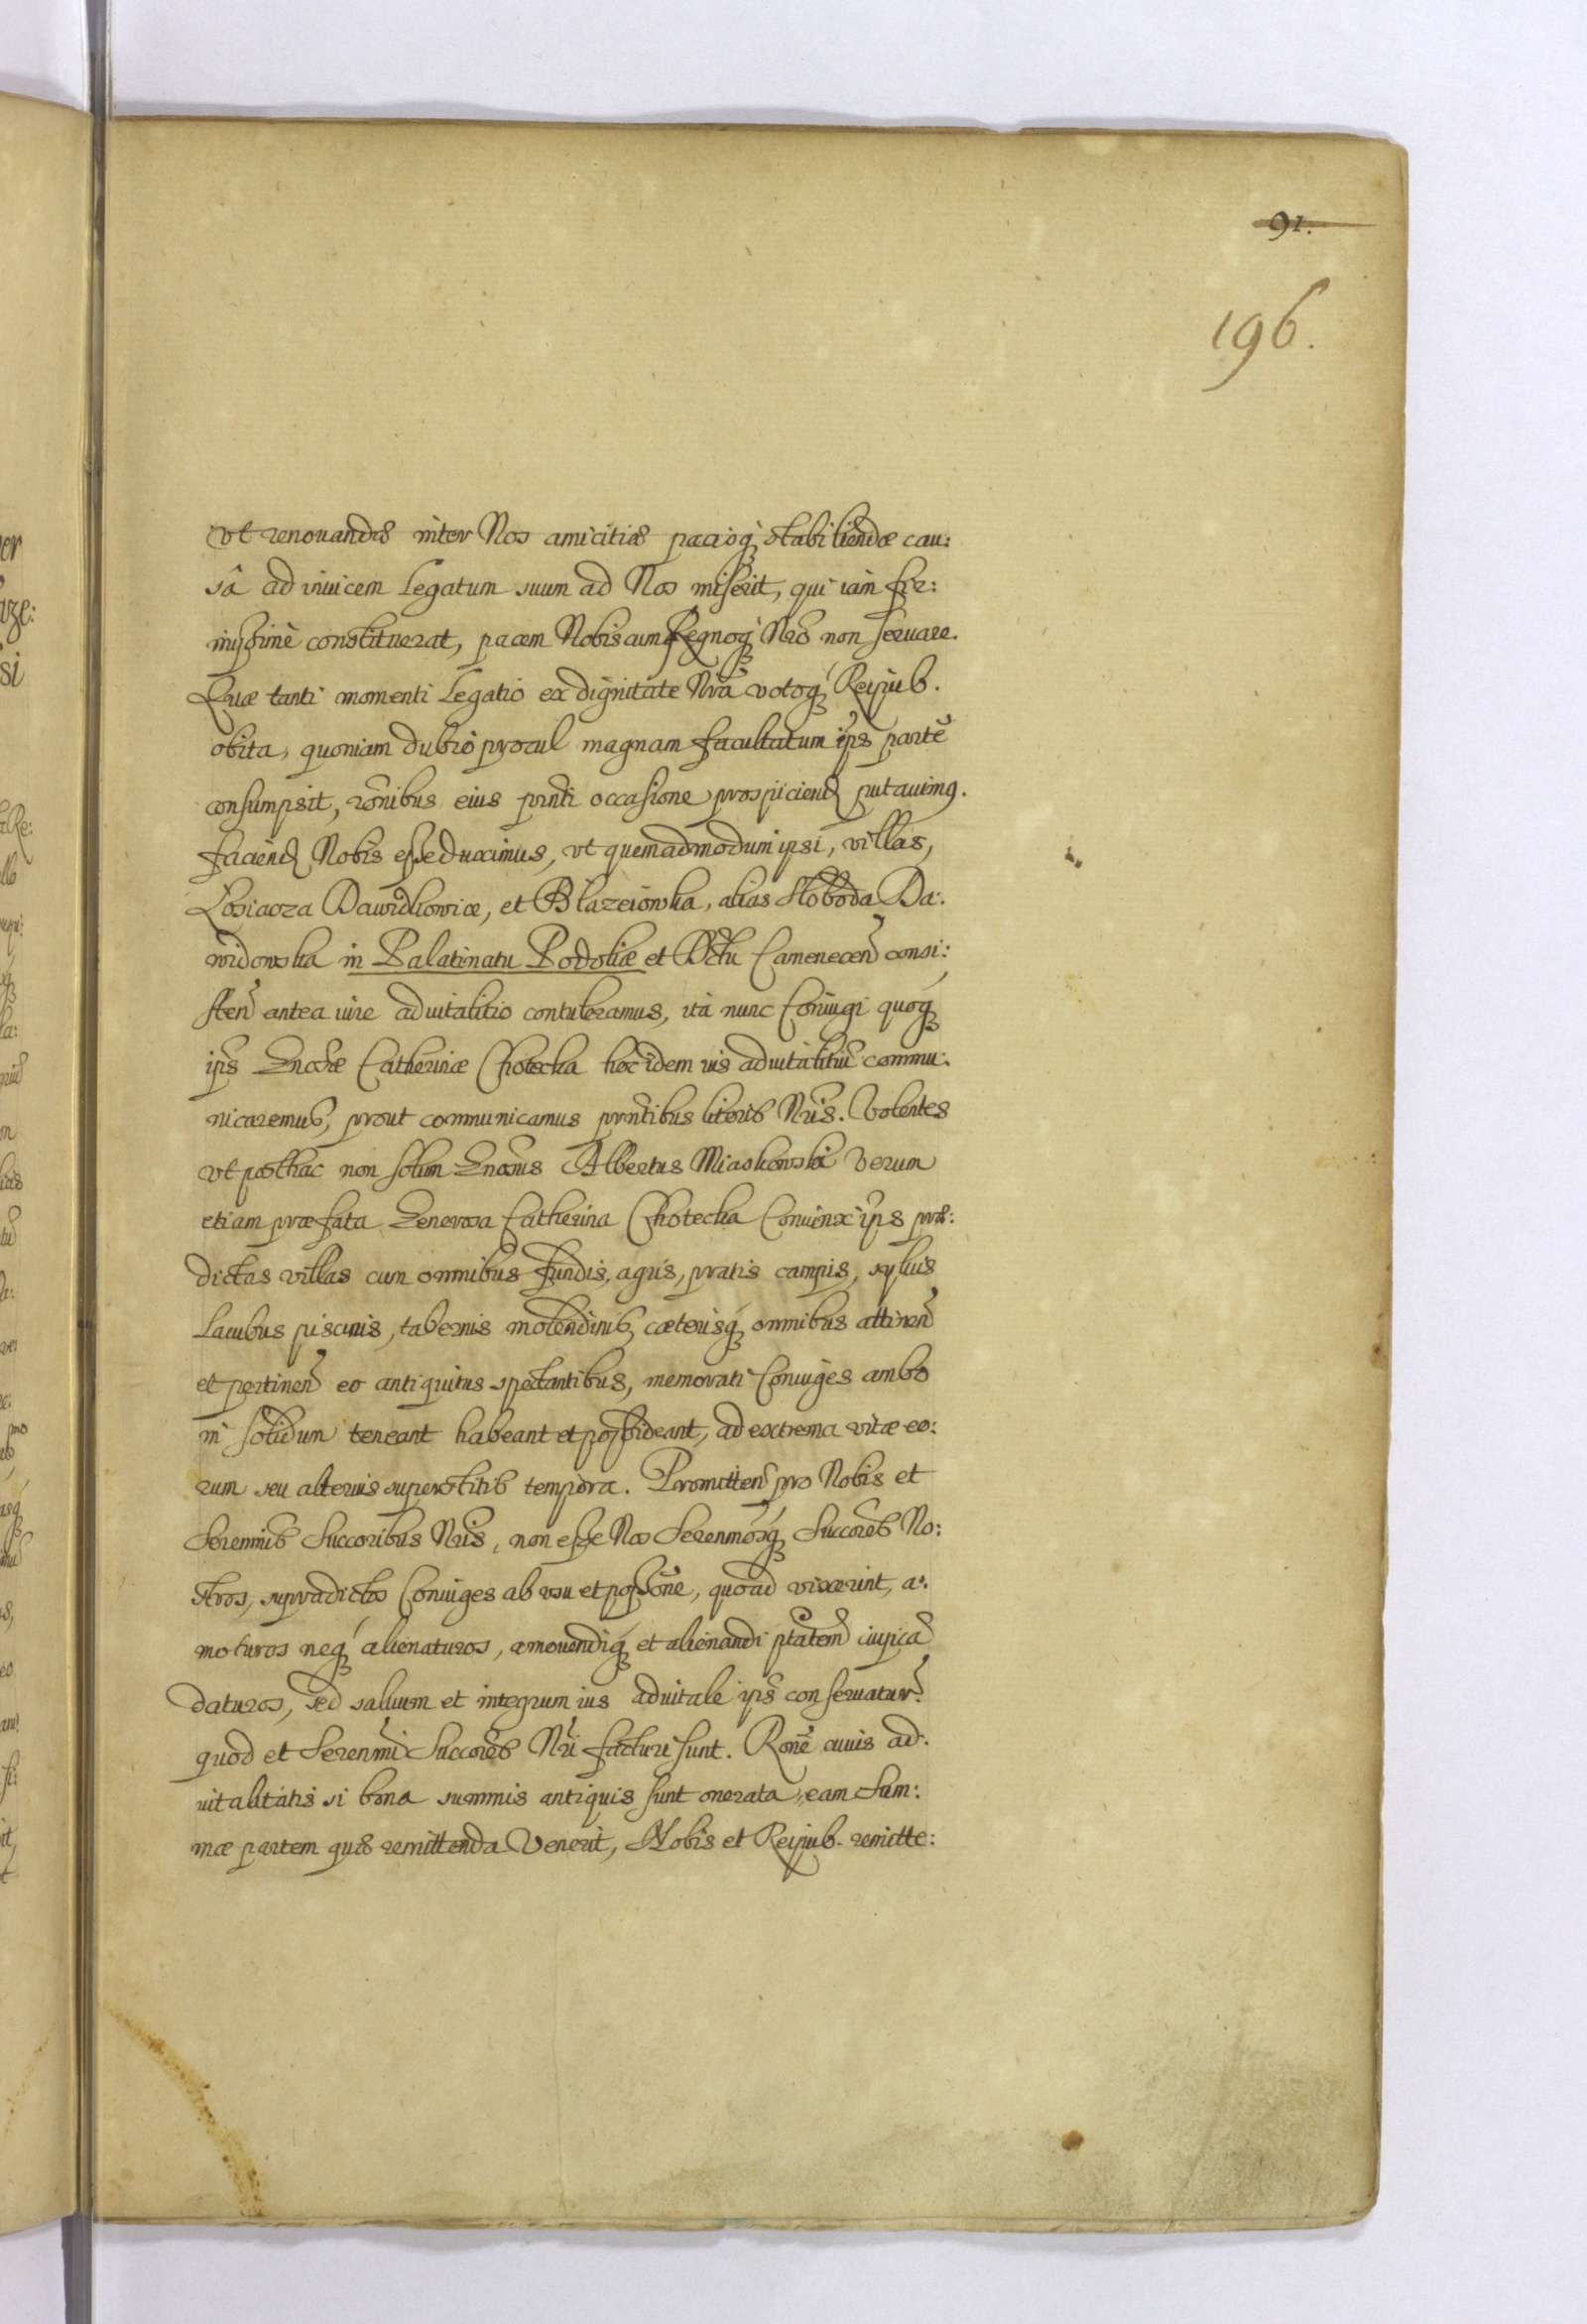 91.
196.
vt renouandæ inter Nos amicitiæ pacisq́ stabiliendæ cau:
sâ ad inuicem Legatum suum ad Nos miserit, qui iàm fir:
missimè constituerat, pacem Nobiscum Regnoq́ Nrõ non seruare.
Quæ tanti momenti Legatio ex dignitate Nrã votoq́ Reipub.
obita, quoniam dubio procul magnam facultatum ips partẽ
consumpsit, rõnibus eius prñti occasione prospiciend putauimq.
faciend Nobis esse duximus, vt quemadmodum ipsi, villas,
Losiacza Dawidkowice, et Blazeiowka, alias Sloboda Da:
widowska in Palatinatu Podoliæ et Dctu Camenecen consi:
sten antea iure aduitalitio contuleramus, ità nunc Coniugi quoq́
ips Gnosæ Catherinæ Chotecka hoc idem ius aduitalitiũ commu:
nicaremus, prout communicamus prñtibus literis Nris. Volentes
vt posthac non solum Gnosus Albertus Miaskowski verum
etiam præfata Generosa Catherina Chotecka Coniunx ips præ:
dictas villas cum omnibus fundis, agris, pratis campis, syluis
Lacubus piscinis, tabernis molendinis, cæterisq́ omnibus attinen
et pertinen eo antiquitus spectantibus, memorati Coniuges ambo
in solidum teneant habeant et possideant, ad extrema vitæ eo:
rum seu alterius superstitis tempora. Promitten pro Nobis et
Serenmis Succoribus Nris, non esse Nos Serenmosq́ Succores No:
stros, supradictos Coniuges ab vsu et possõne, quoad vixerint, a:
moturos neq́ alienaturos, amouendiq́ et alienandi ptatem cuipiã
daturos, sed saluum et integrum ius aduitale ips conseruatur
quod et Serenmi Succores Nri facturi sunt. Ronẽ cuius ad:
uitalitatis si bona summis antiquis sunt onerata, eam Sum:
mæ partem quæ remittenda venerit, Nobis et Reipub. remitte: